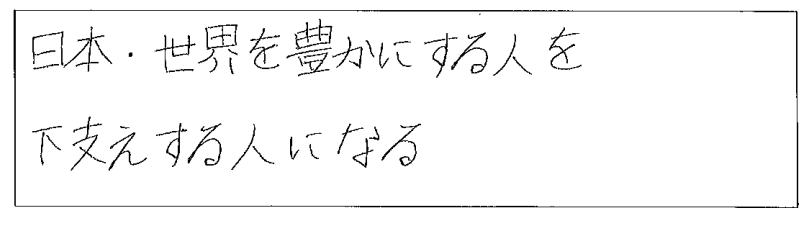 日本・世界を豊かにする人を
下支えする人になる